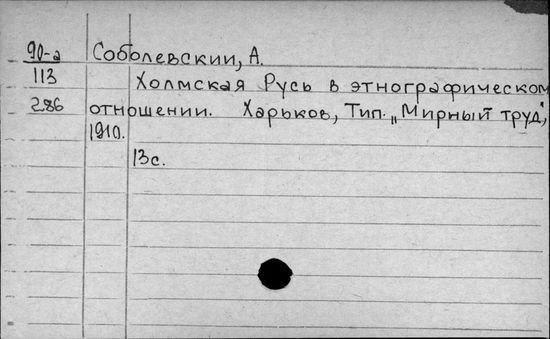 90-а Соболевский, А.
113 Холмская Русь в этнографическом
286 отношении. Харьков, Тип. „Мирный труд",
1910.
13с.